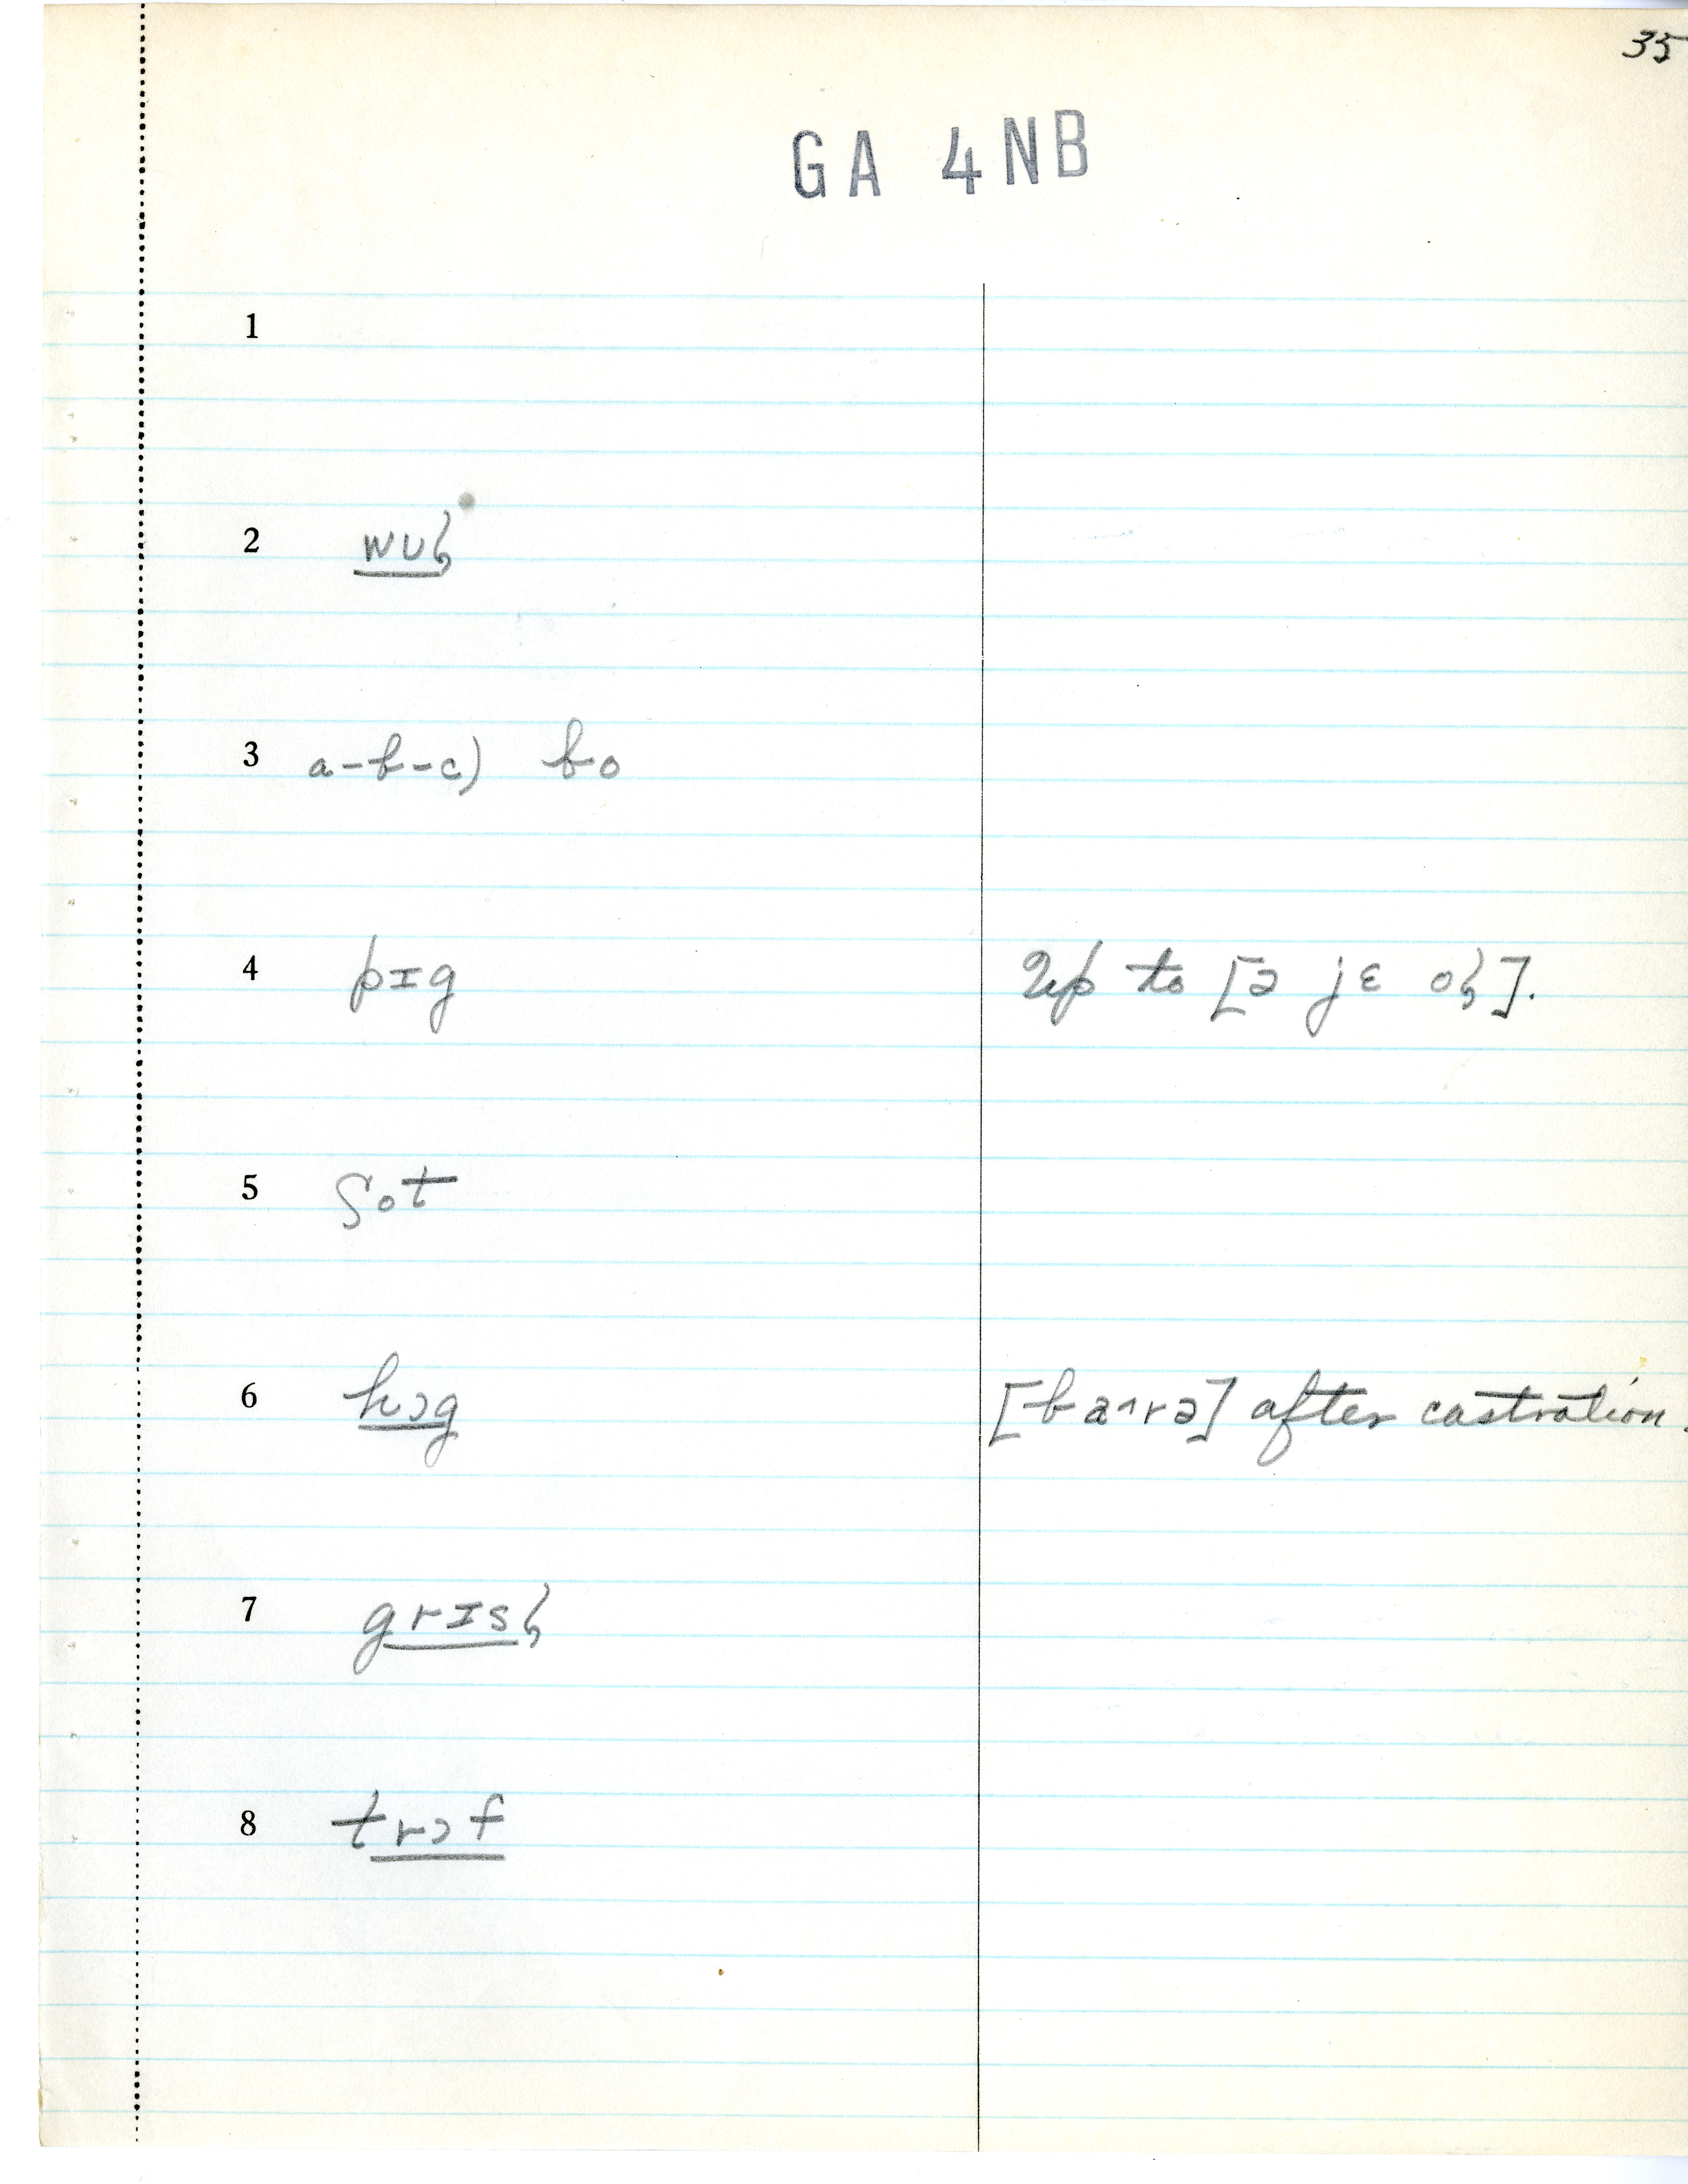 35
GA 4NB
1
2 wul
3 a-b-c) bo
4 pɪg Up to [ə jɛ ol].
5 ʃot
6 hɔg [ba^rə] after castration.
7 grɪsl
8 trɔf